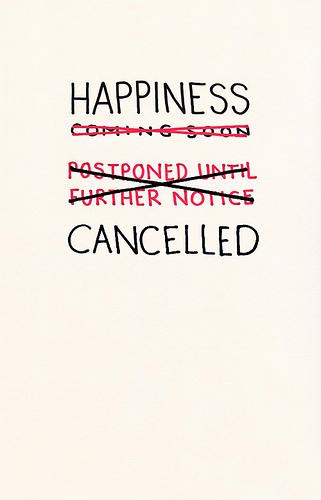 HAPPINESS
COMING SOON
POSTPONED UNTIL
FURTHER NOTICE
CANCELLED